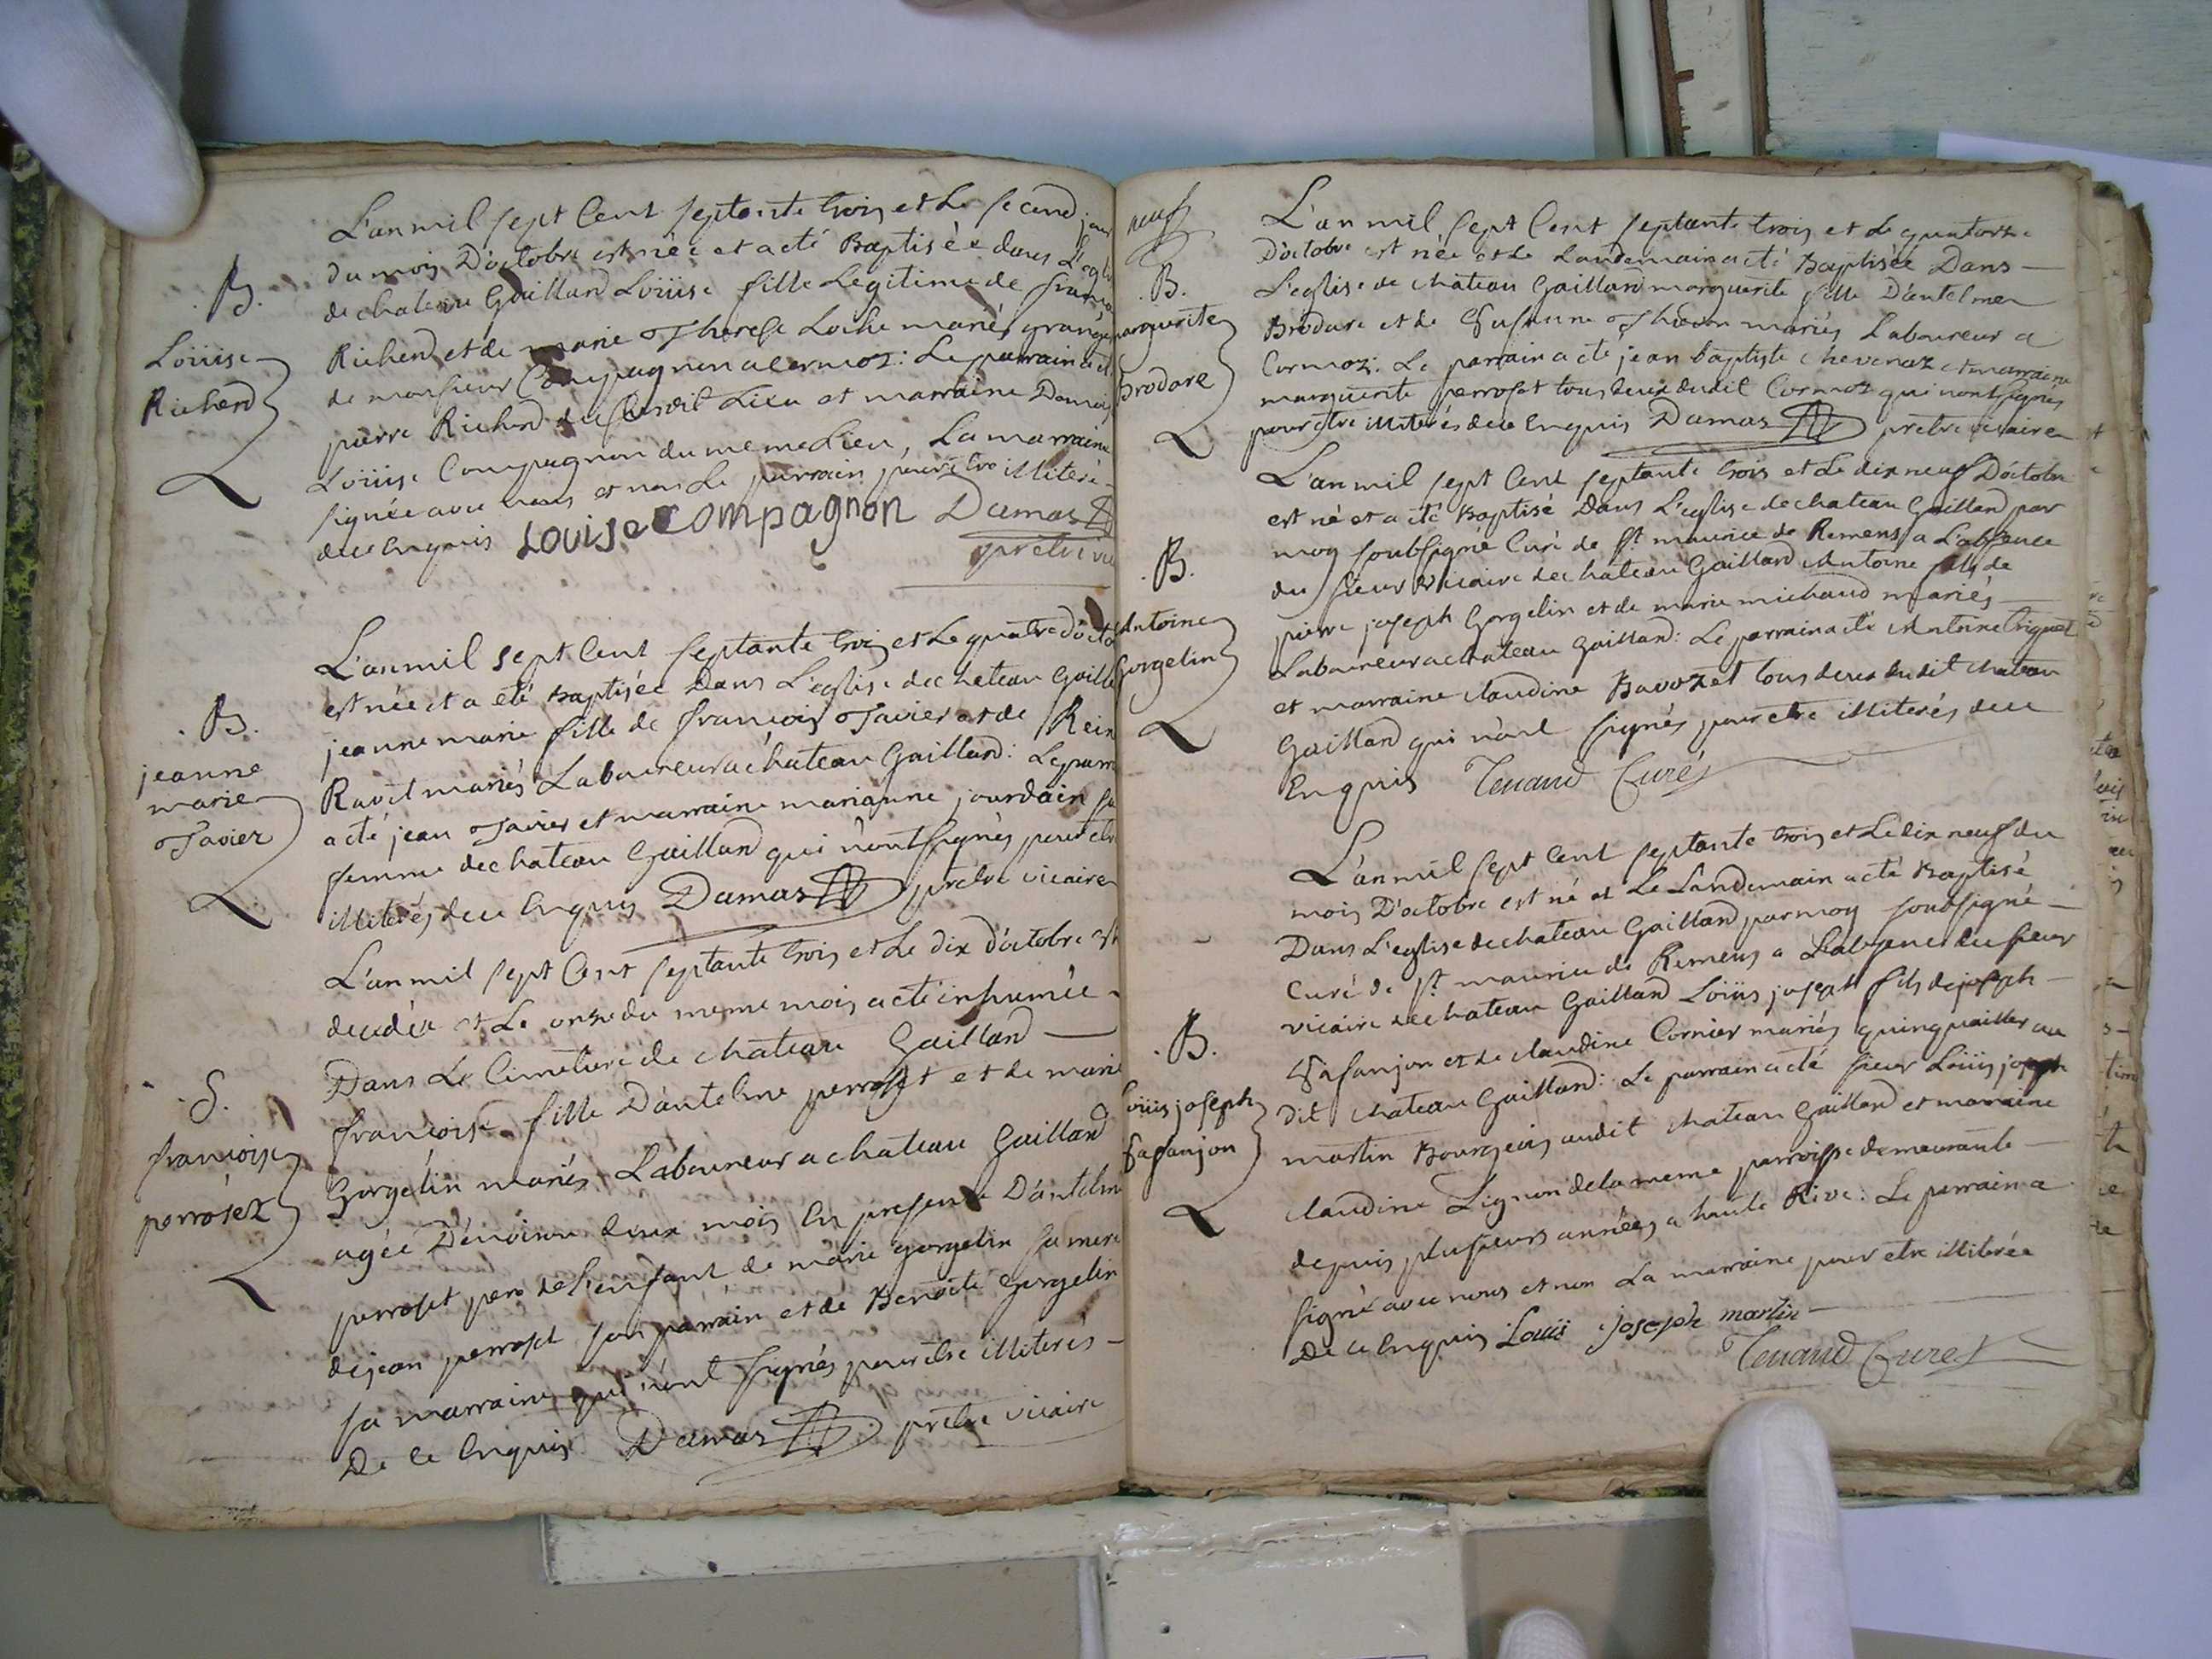 .B.
Loüise
Richerd
L'an mil sept Cent septante trois et Le second jour
du mois D'octobre est née et a eté Baptisée dans L'eglise
de chateau Gaillard Loüise fille Legitime de
Richerd et de marie Therese Loche mariés granger
de monsieur Compagnon a cormoz: Le parrain a eté
pierre Richerd du susdit Lieu et marraine
Loüise Compagnon du meme Lieu, La marraine
signée avec nous et non Le parrain pour etre illiteré
de ce enquis Louise compagnon Dumas
prêtre vic
.B.
jeanne
marie
Tavier
L'an mil sept Cent septante trois et Le quatre d'octo
est née et a eté Baptisée Dans L'eglise de chateau Gaill
jeanne marie fille de françois Tavier et de Rein
Ravet mariés Laboureur a chateau Gaillard: Le parr
a eté jean Tavier et marraine marianne jourdain sa
femme de chateau Gaillard qui n'ont signés pour etre
illiterés de ce enquis Dumas prêtre vicaire
.S.
françoise
perrosez
L'an mil sept Cent septante trois et Le dix d'octobre est
decedée et Le onze du meme mois a eté inhumée
Dans Le Cimetiere de chateau Gaillard
françoise fille D'antelme perroset et de marie
Gorgelin mariés Laboureur a chateau Gaillard
agée D'environ deux mois En presence D'antelme
perroset pere de L'enfant de marie gorgelin sa mere
de jean perroset son parrain et de Benoite gorgelin
sa marraine qui n'ont signés pour etre illiterés
De ce Enquis Dumas prêtre vicaire
neuf
.B.
marguerite
Brodare
L'an mil sept Cent septante trois et Le quatorze
D'octobre est née et Le Landemain a eté Baptisée Dans
L'eglise de chateau Gaillard marguerite fille D'antelme
Brodare et de Susanne mariés Laboureur a
Cormoz: Le parrain a eté jean baptiste chevenoz et marraine
marguerite perroset tous deux dudit Cormoz qui n'ont signés
pour etre illiterés de ce Enquis Dumas prêtre vicaire
.B.
Antoine
Gorgelin
L'an mil sept Cent septante trois et Le dix neuf D'octobre
est né et a eté Baptisé Dans L'eglise de chateau Gaillard par
moy soubsigné Curé de St maurice de Remens a L'absence
du sieur vicaire de chateau Gaillard Antoine fils de
pierre joseph Gorgelin et de marie michaud mariés
Laboureur a chateau Gaillard: Le parrain a eté Antoine
et marraine claudine Bavozet tous deux dudit chateau
Gaillard qui n'ont signés pour etre illiterés de ce
Enquis Tenand Curé
.B.
Loüis joseph
Safanjon
L'an mil sept Cent septante trois et Le dix neuf du
mois D'octobre est né et Le Landemain a eté Baptisé
Dans L'eglise de chateau Gaillard par moy soubsigné
Curé de St maurice de Remens a L'absence du sieur
vicaire de chateau Gaillard Loüis joseph fils de joseph
Safanjon et de claudine Cornier mariés quinquaillier au
dit chateau Gaillard: Le parrain a eté sieur Loüis joseph
martin Bourgeois audit chateau Gaillard et marraine
claudine Lignon de la meme parroisse demeurante
depuis plusieurs années a haute Rive: Le parrain a
signé avec nous et non La marraine pour etre illiterée
De ce Enquis Louis joseph martin
Tenand Curé